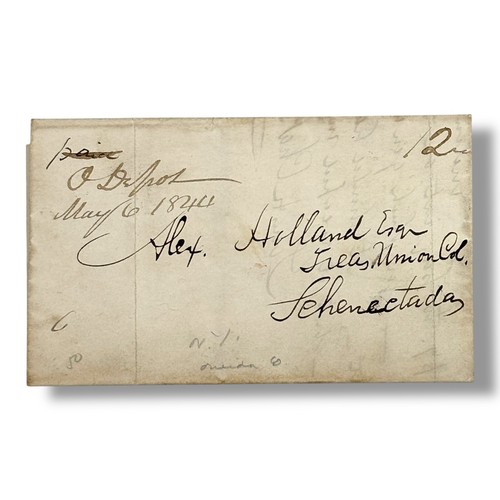 paid
12
O Depot
May 6 1844
Alex. Holland Esqr
Treas Union Col.
Schenectada
6
50
N.Y.
oneida 6